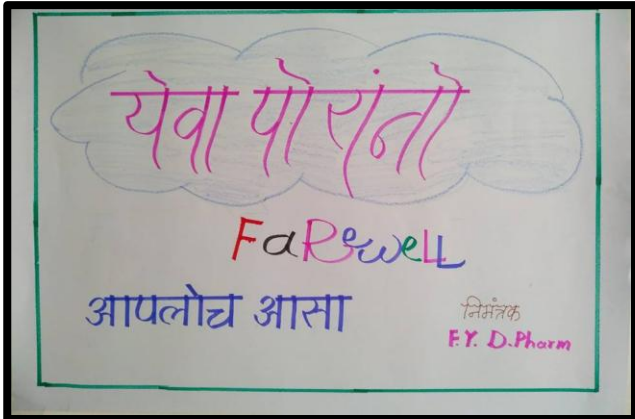 येवा पोरांनो
FaReweLL
आपलोच आसा
निमंत्रक
F.Y. D.Pharm